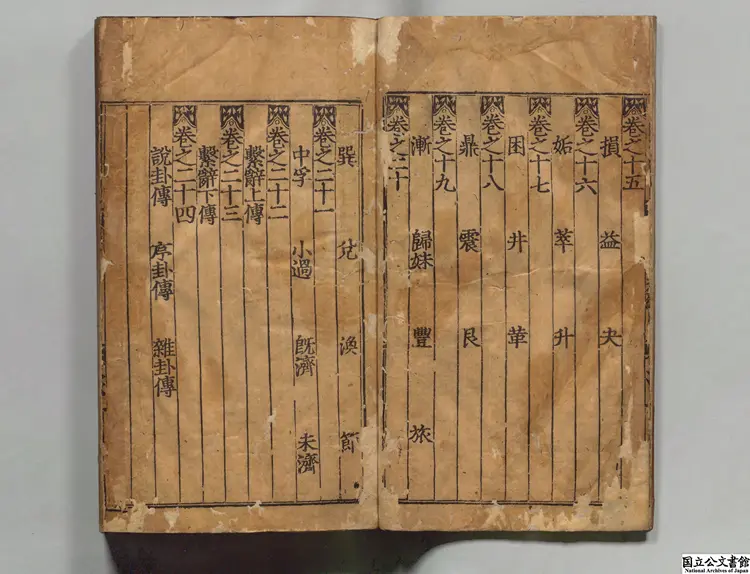 卷之十五
損 益 夬
卷之十六
姤 萃 升
卷之十七
困 井 革
卷之十八
鼎 震 艮
卷之十九
漸 歸妹 豐 旅
卷之二十
巽 兌 渙 節
卷之二十一
中孚 小過 旣濟 未濟
卷之二十二
繫辭上傳
卷之二十三
繫辭下傳
卷之二十四
說卦傳 序卦傳 雜卦傳
国立公文書館
National Archives of Japan